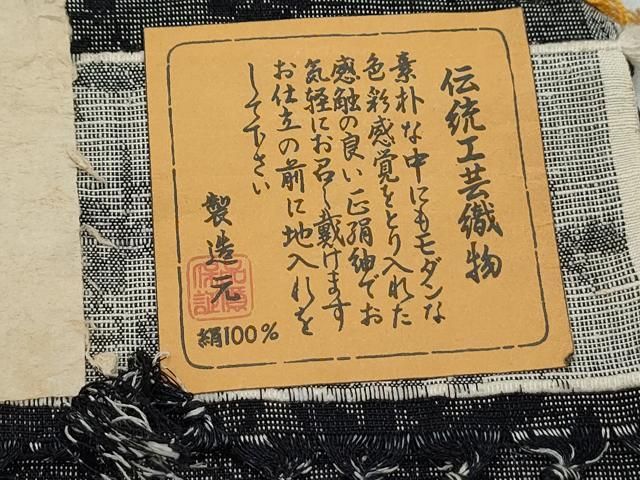 伝統工芸織物
素朴な中にもモダンな
色彩感覚をとり入れた
感触の良い正絹紬でお
気軽にお召し戴けます
お仕立の前に地入れを
して下さい
製造元
品質
保証
絹100%